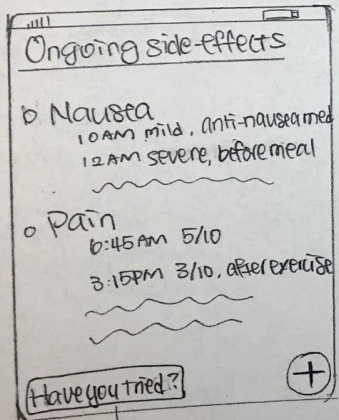 Ongoing side-effects
Nausea
10AM mild, anti-nausea med
12AM severe, before meal
Pain
6:45AM 5/10
3:15PM 3/10, after exercise
Have you tried?
+